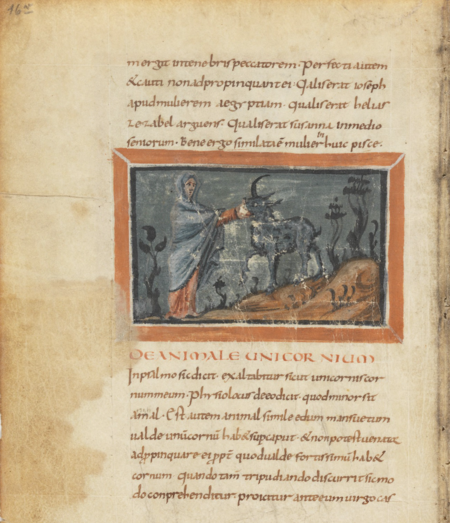 16v
mergit intenebris peccatorem · Perfecti autem
& cauti non adpropinquant ei · Qaliserat ioseph
apud mulierem aegyptiam · qualiserat helias
iezabel arguens · Qualiserat susanna inmedio
seniorum · Bene ergo similata ē mulier huic pisce ·
DE ANIMALE UNICORNIUM
In psalmo sic dicit · exaltabitur sicut unicornis cor
num meum · Phisiolocus de eo dicit quod minor sit
animal · Est autem animal simile edum mansuetum
ualde unū cornū hab& sup caput · & non potest uenator
adppinquare ei quod ualde fortissimū hab&
cornum quando tam tripudiando discurrit sic mo
do conprehenditur · proicitur ante eum uirgo cas